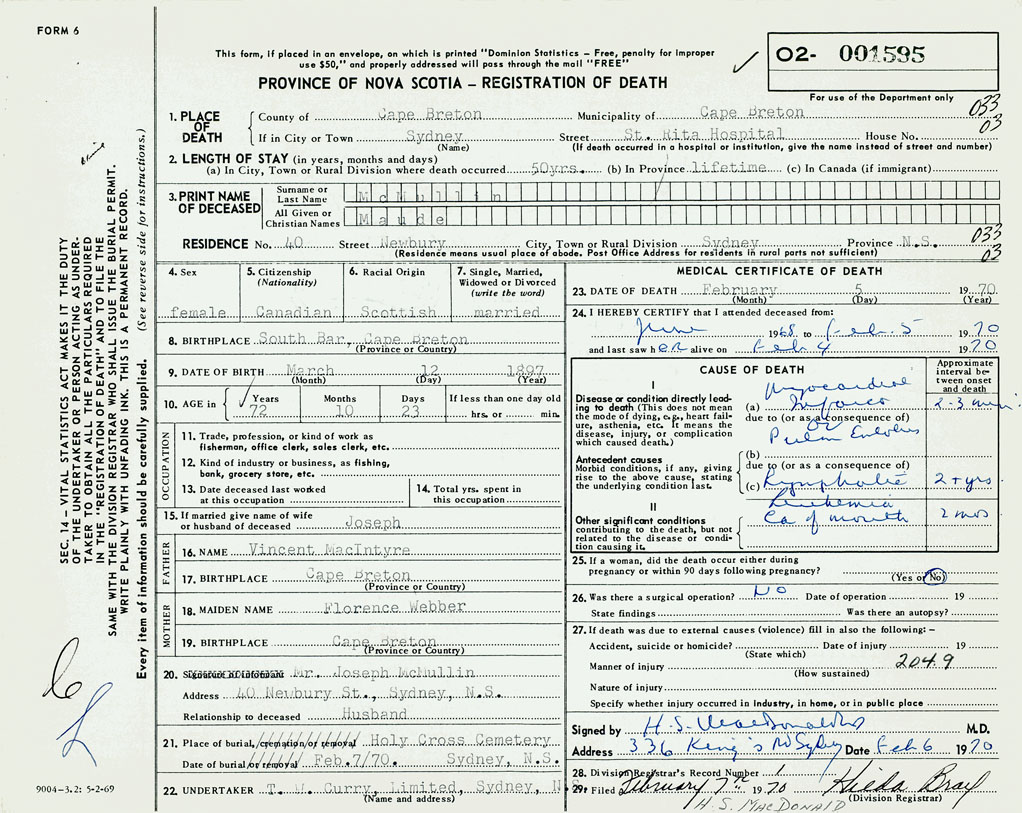 FORM 6
This form, if placed in an envelope, on which is printed "Dominion Statistics – Free, penalty for improper
use $50," and properly addressed will pass through the mail "FREE"
O2- 001595
PROVINCE OF NOVA SCOTIA – REGISTRATION OF DEATH
For use of the Department only
033
03
1. PLACE OF DEATH
County of Cape Breton Municipality of Cape Breton
If in City or Town Sydney Street St. Rita Hospital House No.
(Name) (If death occurred in a hospital or institution, give the name instead of street and number)
2. LENGTH OF STAY (in years, months and days)
(a) In City, Town or Rural Division where death occurred 50yrs. (b) In Province lifetime (c) In Canada (if immigrant)
3. PRINT NAME OF DECEASED
Surname or Last Name McMullin
All Given or Christian Names Maude
RESIDENCE No. 40 Street Newbury City, Town or Rural Division Sydney Province N.S.
033
03
(Residence means usual place of abode. Post Office Address for residents in rural parts not sufficient)
4. Sex
female
5. Citizenship
(Nationality)
Canadian
6. Racial Origin
Scottish
7. Single, Married,
Widowed or Divorced
(write the word)
married
8. BIRTHPLACE South Bar, Cape Breton
(Province or Country)
9. DATE OF BIRTH March 12 1897
(Month) (Day) (Year)
10. AGE in
Years Months Days If less than one day old
72 10 23 hrs. or min.
OCCUPATION
11. Trade, profession, or kind of work as
fisherman, office clerk, sales clerk, etc.
12. Kind of industry or business, as fishing,
bank, grocery store, etc.
13. Date deceased last worked
at this occupation
14. Total yrs. spent in
this occupation
15. If married give name of wife
or husband of deceased Joseph
FATHER
16. NAME Vincent MacIntyre
17. BIRTHPLACE Cape Breton
(Province or Country)
MOTHER
18. MAIDEN NAME Florence Webber
19. BIRTHPLACE Cape Breton
(Province or Country)
20. Signature of informant Mr. Joseph McMullin
Address 40 Newbury St., Sydney, N.S.
Relationship to deceased Husband
21. Place of burial, cremation or removal Holy Cross Cemetery
Date of burial or removal Feb.7/70. Sydney, N.S.
22. UNDERTAKER T. W. Curry, Limited, Sydney, NS
(Name and address)
MEDICAL CERTIFICATE OF DEATH
23. DATE OF DEATH February 5 1970
(Month) (Day) (Year)
24. I HEREBY CERTIFY that I attended deceased from:
June 1968 to Feb. 5 1970
and last saw her alive on Feb 4 1970
CAUSE OF DEATH
Approximate interval between onset and death
I
Disease or condition directly leading to death (This does not mean the mode of dying, e.g., heart failure, asthenia, etc. It means the disease, injury, or complication which caused death.)
Myocardial
(a) Infarct 2-3 min
due to (or as a consequence of)
or
Pulm Embolus
Antecedent causes
Morbid conditions, if any, giving rise to the above cause, stating the underlying condition last.
(b)
due to (or as a consequence of)
(c) Lymphatic 2+ yrs.
Leukemia
II
Other significant conditions
contributing to the death, but not related to the disease or condition causing it.
Ca of mouth 2 mos
25. If a woman, did the death occur either during
pregnancy or within 90 days following pregnancy?
(Yes or No)
26. Was there a surgical operation? NO Date of operation 19
State findings Was there an autopsy?
27. If death was due to external causes (violence) fill in also the following:–
Accident, suicide or homicide? Date of injury 19
(State which)
Manner of injury 204.9
(How sustained)
Nature of injury
Specify whether injury occurred in industry, in home, or in public place
Signed by H. S. MacDonald M.D.
Address 336 King's Rd Sydney Date Feb 6 1970
28. Division Registrar's Record Number 1
29. Filed February 7th 1970 Hilda Bray
(Division Registrar)
H. S. MACDONALD
SEC. 14 – VITAL STATISTICS ACT MAKES IT THE DUTY
OF THE UNDERTAKER OR PERSON ACTING AS UNDER-
TAKER TO OBTAIN ALL THE PARTICULARS REQUIRED
IN THE "REGISTRATION OF DEATH" AND TO FILE THE
SAME WITH THE DIVISION REGISTRAR WHO SHALL ISSUE THE BURIAL PERMIT.
WRITE PLAINLY WITH UNFADING INK. THIS IS A PERMANENT RECORD.
Every item of information should be carefully supplied. (See reverse side for instructions.)
9004-3.2: 5-2-69